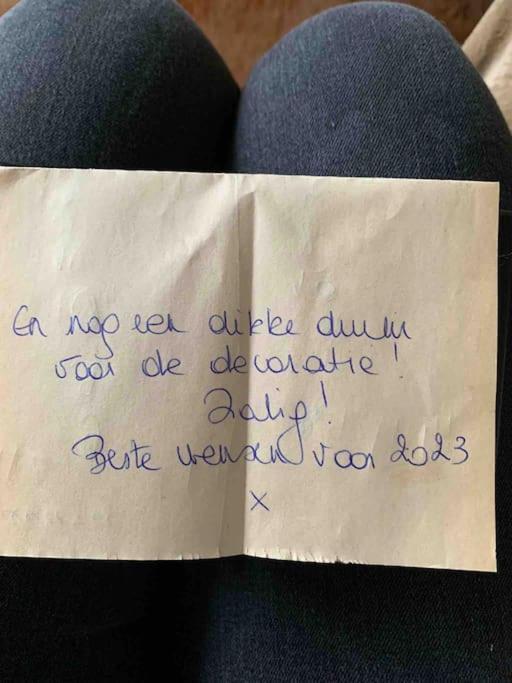 En nog een dikke duim
voor de decoratie!
Zalig!
Beste wensen voor 2023
x